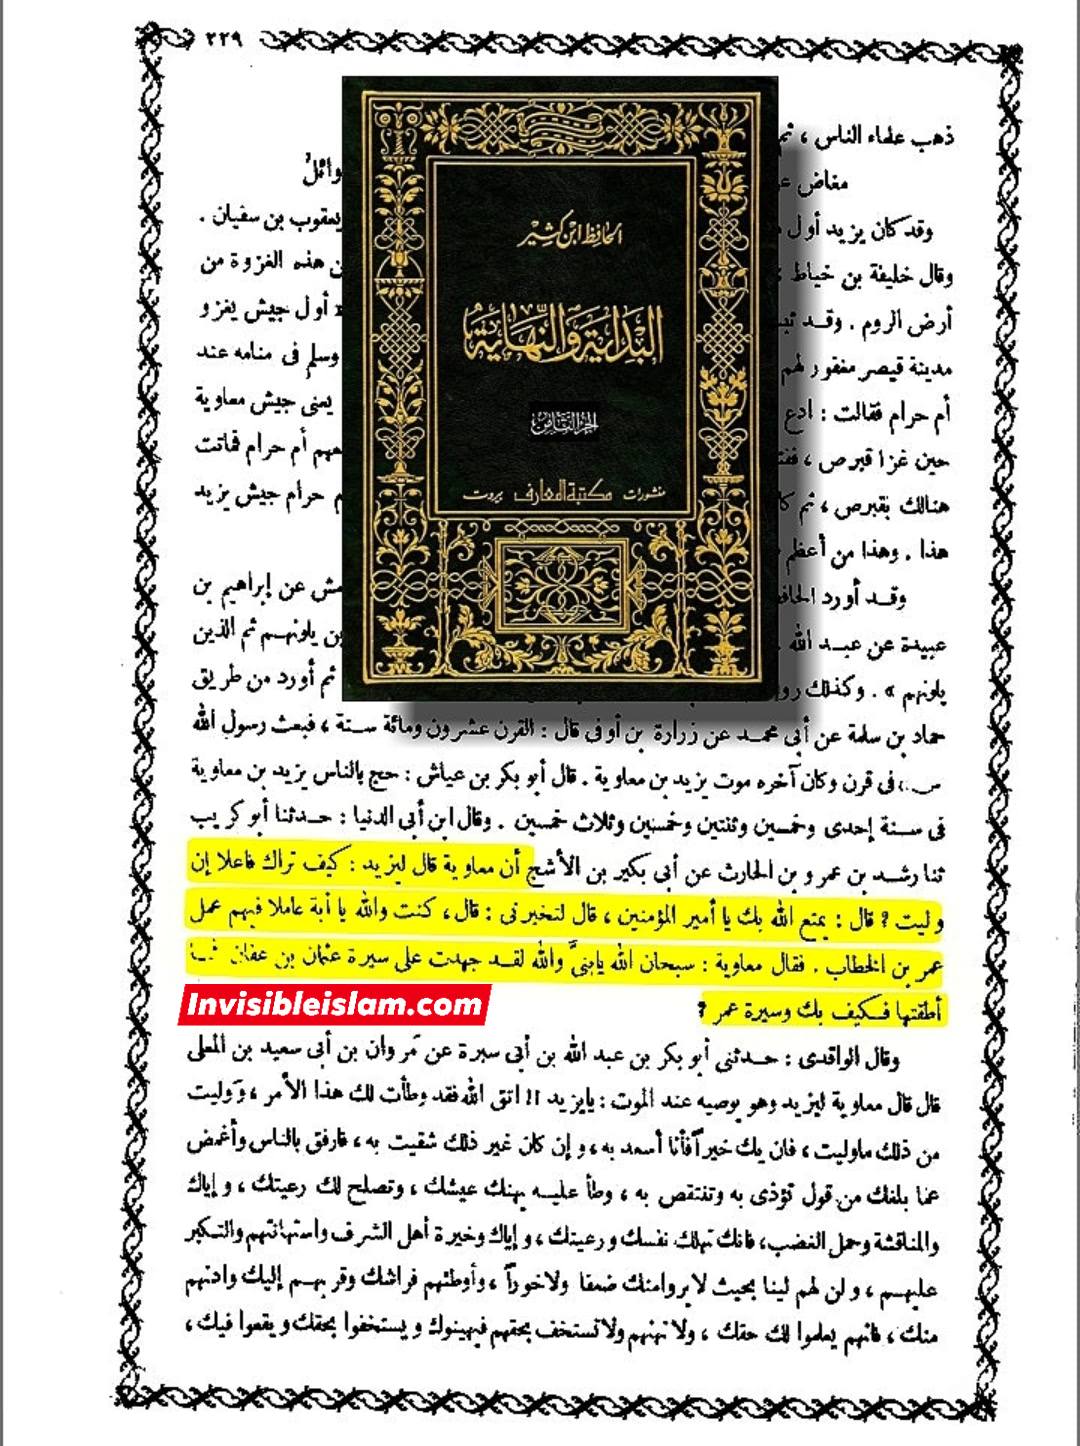 ٢٢٩
ذهب علماء الناس ، ثم
مغاض
وقد كان يزيد أول
يعقوب بن سفيان .
وقال خليفة بن خياط
هذه الغزوة من
أرض الروم . وقد
« أول جيش يغزو
مدينة قيصر مغفور لهم
وسلم فى منامه عند
أم حرام فقالت : ادع
يعنى جيش معاوية
حين غزا قبرص ،
أم حرام فماتت
هنالك بقبرص ، ثم
حرام جيش يزيد
هذا . وهذا من أعظم
وقد أورد
عن إبراهيم بن
عبيدة عن عبد الله
يلونهم ثم الذين
يلونهم » . وكذلك
ثم أورد من طريق
الحافظ ابن كثير
البداية والنهاية
الجزء الثامن
منشورات مكتبة المعارف بيروت
حماد بن سلمة عن أبى محمد عن زرارة بن أوفى قال : القرن عشرون ومائة سنة ، فبعث رسول الله
فى قرن وكان آخره موت يزيد بن معاوية . قال أبو بكر بن عياش : حج بالناس يزيد بن معاوية
فى سنة إحدى وخمسين وثنتين وخمسين وثلاث خمسين . وقال ابن أبى الدنيا : حدثنا أبو كريب
ثنا رشد بن عمرو بن الحارث عن أبى بكير بن الأشج أن معاوية قال ليزيد : كيف تراك فاعلا إن
وليت ؟ قال : يمتع الله بك يا أمير المؤمنين ، قال لتخبرنى : قال ، كنت والله يا أبة عاملا فيهم عمل
عمر بن الخطاب . فقال معاوية : سبحان الله يابنىَّ والله لقد جهدت على سيرة عثمان بن عفان فما
أطقتها فكيف بك وسيرة عمر ؟
Invisibleislam.com
وقال الواقدى : حدثنى أبو بكر بن عبد الله بن أبى سبرة عن مروان بن أبى سعيد بن المعلى
قال قال معاوية ليزيد وهو يوصيه عند الموت : يايزيد !! اتق الله فقد وطأت لك هذا الأمر ، ووليت
من ذلك ماوليت ، فان يك خيراً فأنا أسعد به ، و إن كان غير ذلك شقيت به ، فارفق بالناس وأغمض
عما بلغك من قول تؤذى به وتنتقص به ، وطأ عليه يهنك عيشك ، وتصلح لك رعيتك ، و إياك
والمناقشة وحمل الغضب ، فانك تهلك نفسك ورعيتك ، و إياك وخيرة أهل الشرف واستهانتهم والتكبر
عليهم ، ولن لهم لينا بحيث لا يروا منك ضعفا ولا خوراً ، وأوطئهم فراشك وقربهم إليك وادنهم
منك ، فانهم يعلموا لك حقك ، ولا تهنهم ولا تستخف بحقهم فيهينوك و يستخفوا بحقك و يقعوا فيك ،